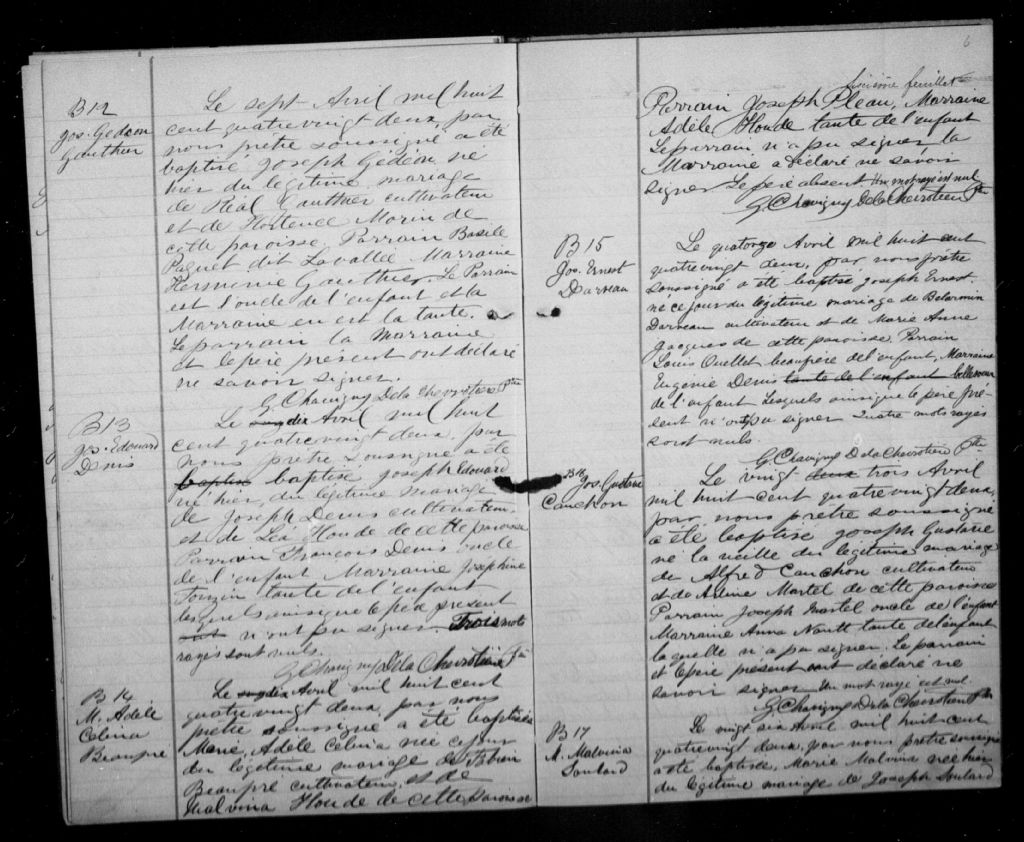 B 12
Jos. Gédéon
Gauthier
Le sept Avril mil huit
cent quatre vingt deux, par
nous prêtre soussigné a été
baptisé Joseph Gédéon né
hier du légitime mariage
de Réal Gauthier cultivateur
et de Hortence Morin de
cette paroisse. Parrain Basile
Paquet dit Lavallée Marraine
Herminie Gauthier. Le Parrain
est l'oncle de l'enfant et la
Marraine en est la tante.
Le parrain la Marraine
et le père présent ont déclaré
ne savoir signer.
G. Chavigny De la Chevrotière Ptre
B 13
Jos. Edouard
Denis
Le dix Avril mil huit
cent quatre vingt deux, par
nous prêtre soussigné a été
baptisé baptisé Joseph Edouard
né hier, du légitime mariage
de Joseph Denis cultivateur
et de Léa Houde de cette paroisse
Parrain François Denis oncle
de l'enfant Marraine Josephine
tante de l'enfant
lesquels ainsi que le père présent
n'ont pu signer. Trois mots
rayés sont nuls.
G. Chavigny De la Chevrotière Ptre
B 14
M. Adèle
Celina
Beaupré
Le dix Avril mil huit cent
quatre vingt deux, par nous
prêtre soussigné a été baptisée
Marie Adèle Celina née ce jour
du légitime mariage de
Beaupré cultivateur, et de
Malvina Houde de cette paroisse
6
sixième feuillet
Parrain Joseph Pleau, Marraine
Adèle Houde tante de l'enfant
Le parrain n'a pu signer la
Marraine a déclaré ne savoir
signer Le père absent. Un mot rayé est nul
G. Chavigny De la Chevrotière Ptre
B 15
Jos. Ernest
Darveau
Le quatorze Avril mil huit cent
quatre vingt deux, par nous prêtre
soussigné a été baptisé Joseph Ernest
né ce jour du légitime mariage de Belarmin
Darveau cultivateur et de Marie Anne
Jacques de cette paroisse. Parrain
Louis Ouellet beaufrère de l'enfant, Marraine
Eugénie Denis tante de l'enfant bellesoeur
de l'enfant Lesquels ainsi que le père pré-
sent n'ont pu signer Quatre mots rayés
sont nuls.
G. Chavigny De la Chevrotière Ptre
B 16
Jos. Gustave
Cauchon
Le vingt deux trois Avril
mil huit cent quatre vingt deux,
par nous prêtre soussigné
a été baptisé Joseph Gustave
né la veille du légitime mariage
de Alfred Cauchon cultivateur
et de Aline Martel de cette paroisse
Parrain Joseph Martel oncle de l'enfant
Marraine Anna tante de l'enfant
laquelle n'a pu signer. Le parrain
et le père présent ont déclaré ne
savoir signer Un mot rayé est nul
G. Chavigny De la Chevrotière Ptre
B 17
M. Malvina
Soulard
Le vingt six Avril mil huit cent
quatre vingt deux, par nous prêtre soussigné
a été baptisée, Marie Malvina née hier
du légitime mariage de Joseph Soulard